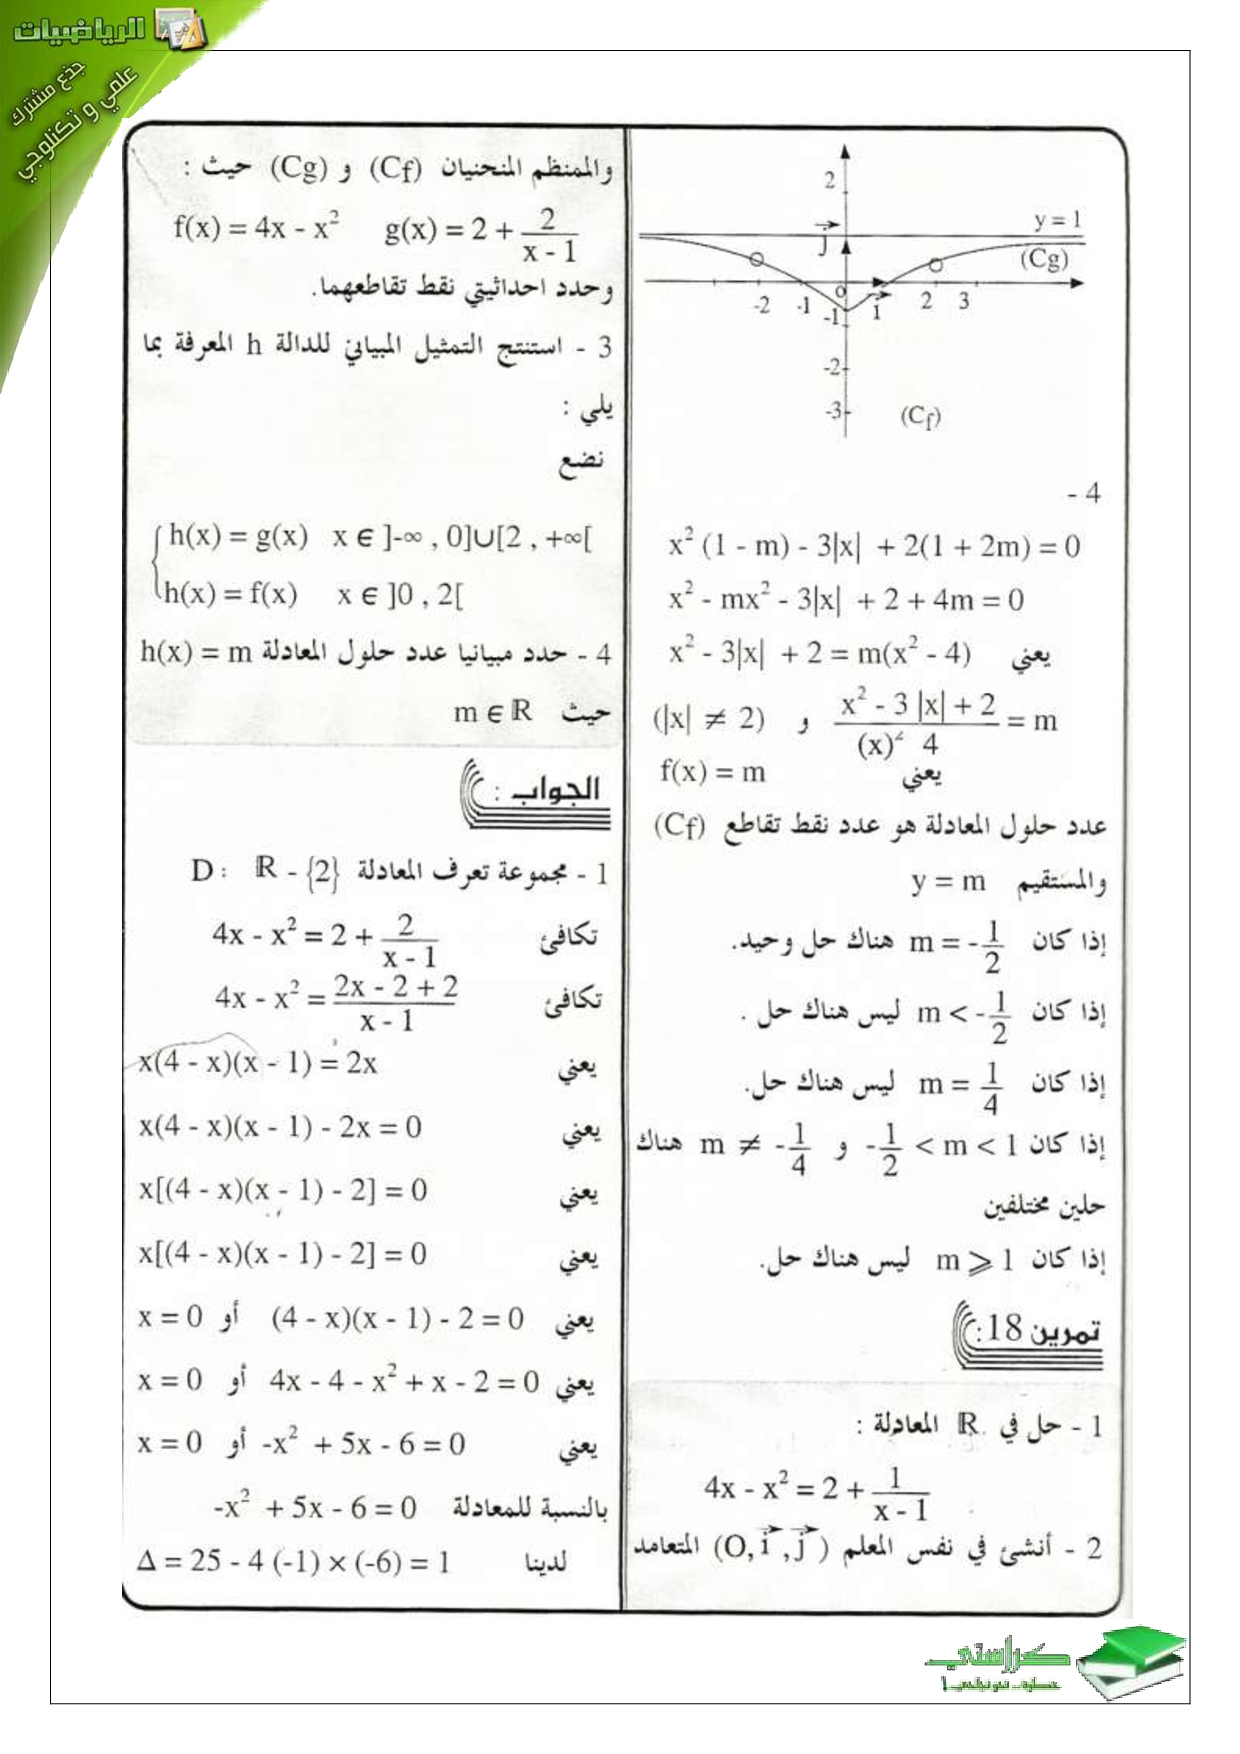 الرياضيات
جذع مشترك
علمي و تكنلوجي
2
y = 1
j
(Cg)
-2 -1 o 1 2 3
i
-1
-2
-3
(Cf)
- 4
x² (1 - m) - 3|x| + 2(1 + 2m) = 0
x² - mx² - 3|x| + 2 + 4m = 0
يعني x² - 3|x| + 2 = m(x² - 4)
(x² - 3 |x| + 2)/((x)² 4) = m و (|x| ≠ 2)
يعني f(x) = m
عدد حلول المعادلة هو عدد نقط تقاطع (Cf)
والمستقيم y = m
إذا كان m = -1/2 هناك حل وحيد.
إذا كان m < -1/2 ليس هناك حل .
إذا كان m = 1/4 ليس هناك حل.
إذا كان -1/2 < m < 1 و m ≠ -1/4 هناك
حلين مختلفين
إذا كان m ⩾ 1 ليس هناك حل.
تمرين 18 :
1 - حل في ℝ المعادلة :
4x - x² = 2 + 1/(x - 1)
2 - أنشئ في نفس المعلم (O, i , j) المتعامد
والمنظم المنحنيان (Cf) و (Cg) حيث :
f(x) = 4x - x² g(x) = 2 + 2/(x - 1)
وحدد احداثيتي نقط تقاطعهما.
3 - استنتج التمثيل المبياني للدالة h المعرفة بما
يلي :
نضع
h(x) = g(x) x ∈ ]-∞ , 0]∪[2 , +∞[
h(x) = f(x) x ∈ ]0 , 2[
4 - حدد مبيانيا عدد حلول المعادلة h(x) = m
حيث m ∈ ℝ
الجواب :
1 - مجموعة تعرف المعادلة D : ℝ - {2}
تكافئ 4x - x² = 2 + 2/(x - 1)
تكافئ 4x - x² = (2x - 2 + 2)/(x - 1)
يعني x(4 - x)(x - 1) = 2x
يعني x(4 - x)(x - 1) - 2x = 0
يعني x[(4 - x)(x - 1) - 2] = 0
يعني x[(4 - x)(x - 1) - 2] = 0
يعني (4 - x)(x - 1) - 2 = 0 أو x = 0
يعني 4x - 4 - x² + x - 2 = 0 أو x = 0
يعني -x² + 5x - 6 = 0 أو x = 0
بالنسبة للمعادلة -x² + 5x - 6 = 0
لدينا Δ = 25 - 4 (-1) × (-6) = 1
كراستي